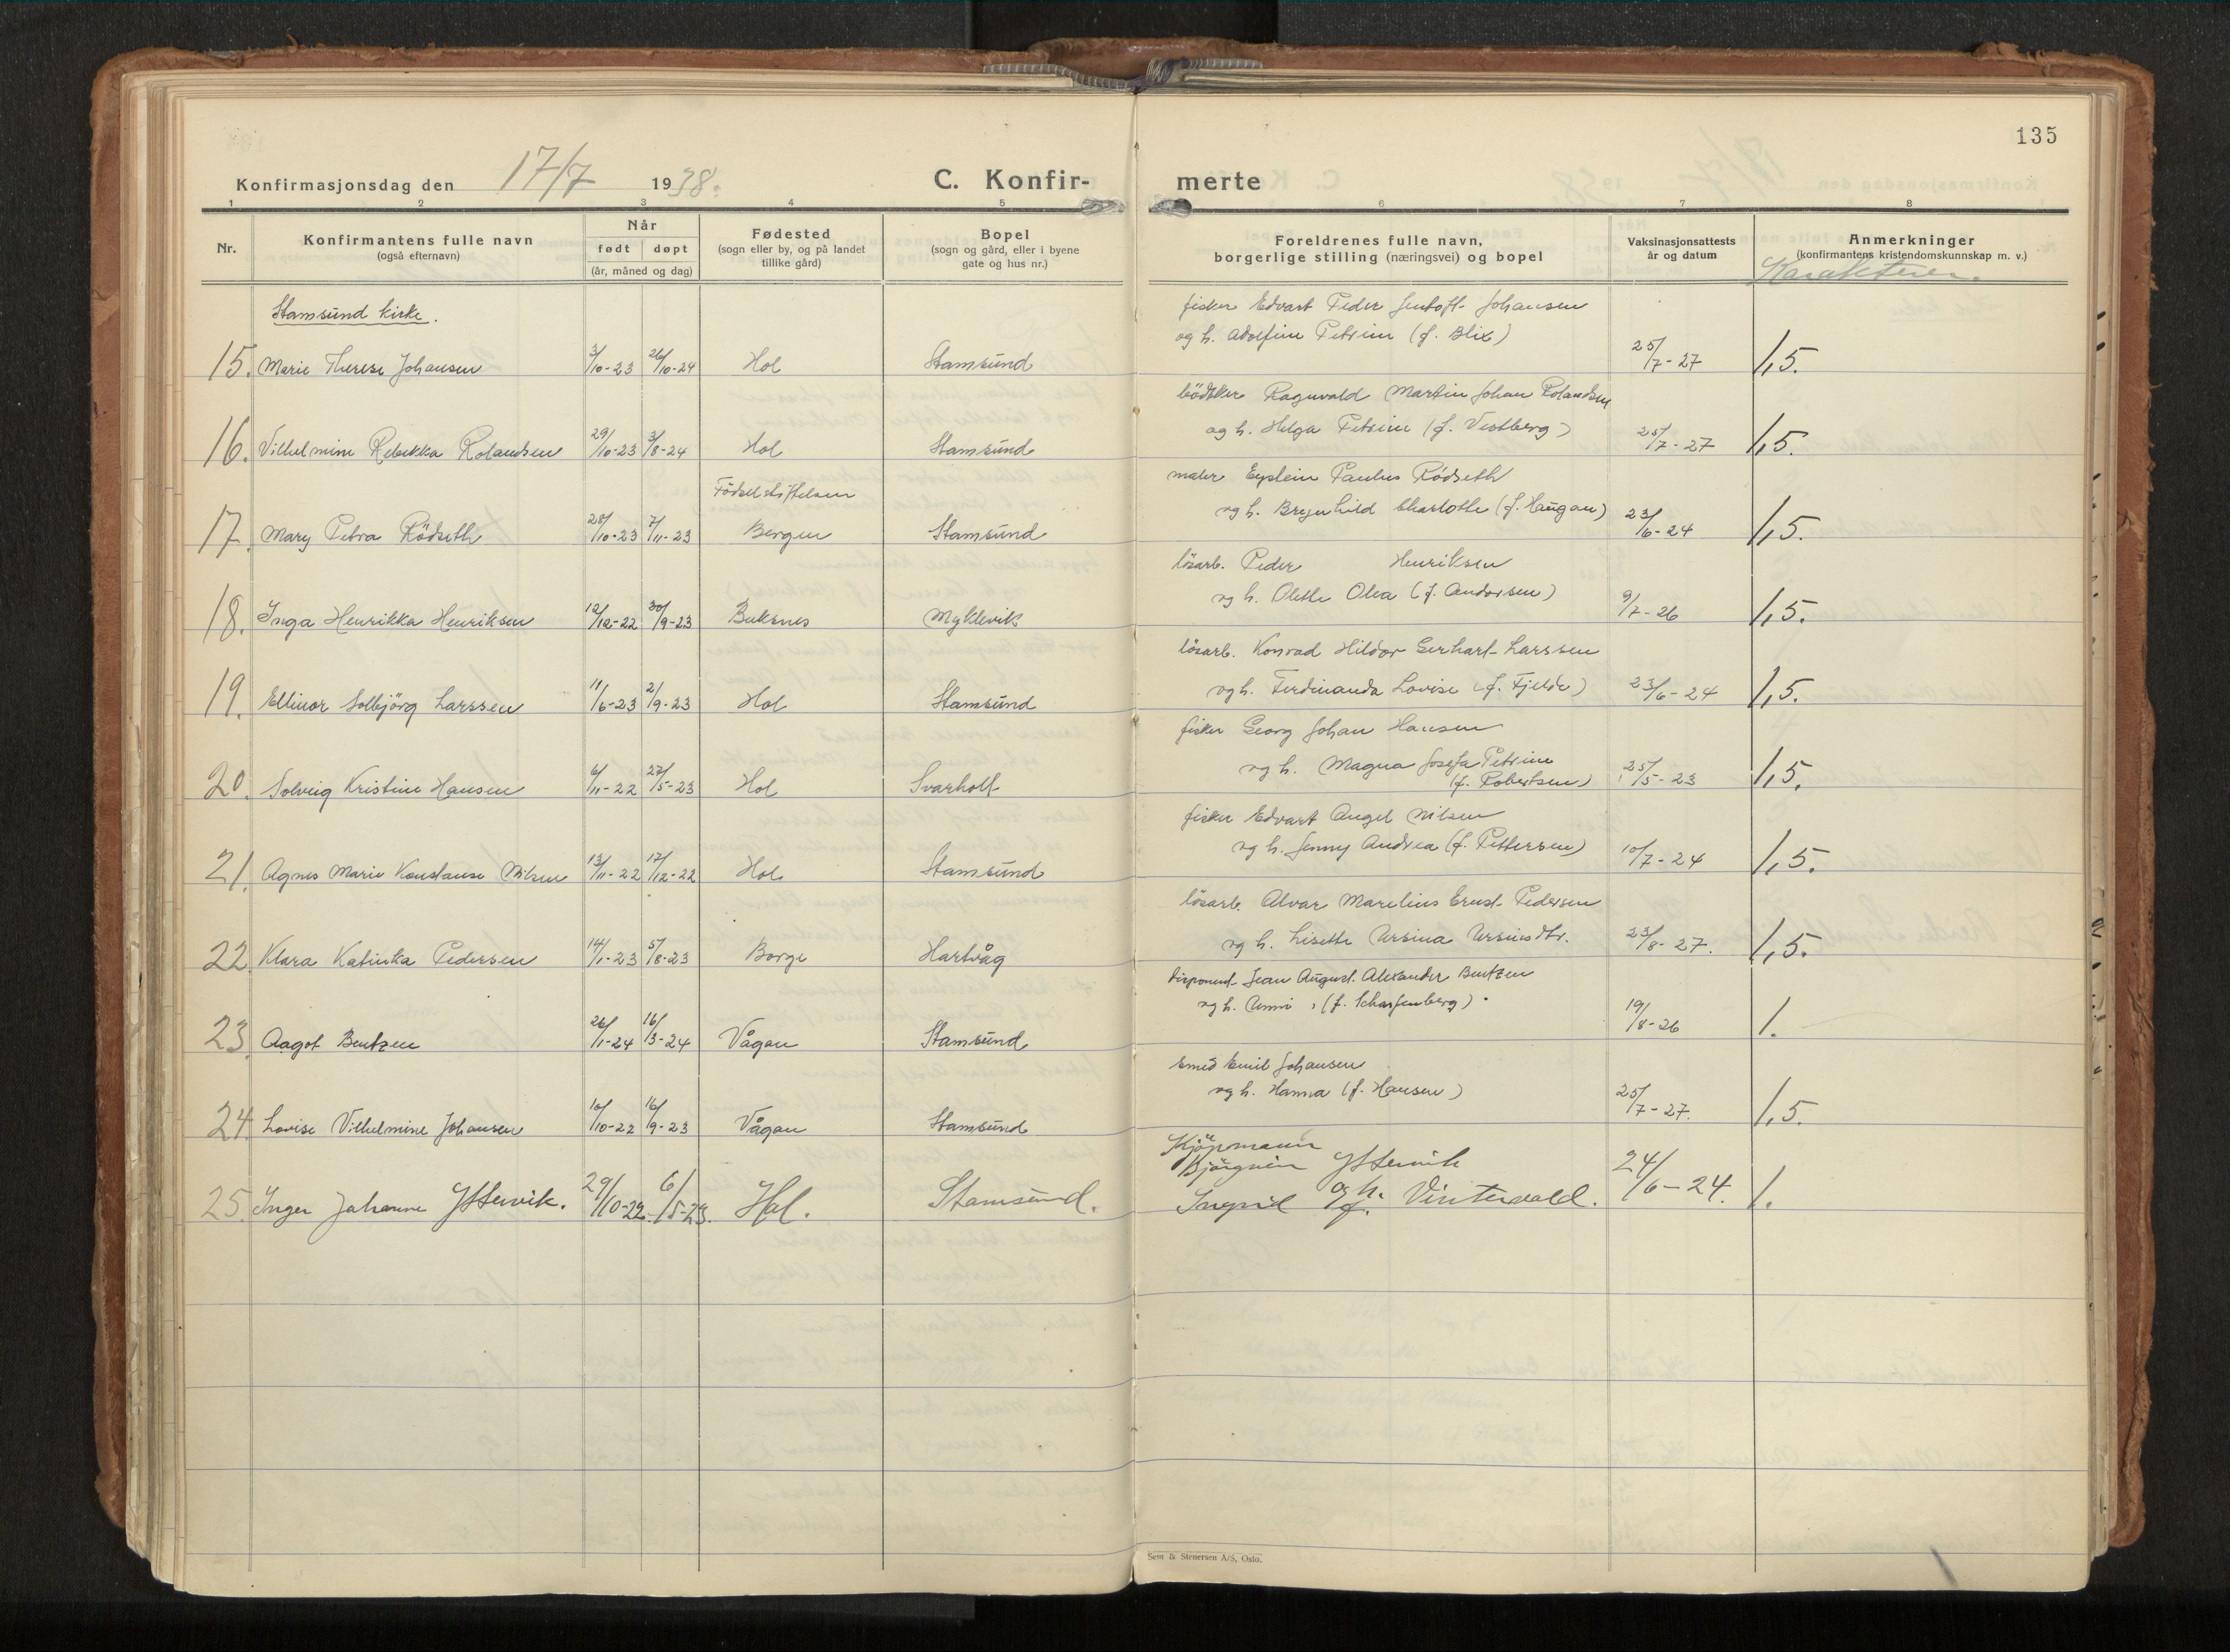 135
Konfirmasjonsdag den 17/7 1938. C. Konfirmerte
1 2 3 4 5 6 7 8
Nr. Konfirmantens fulle navn (også efternavn) Når født døpt (år, måned og dag) Fødested (sogn eller by, og på landet tillike gård) Bopel (sogn og gård, eller i byene gate og hus nr.) Foreldrenes fulle navn, borgerlige stilling (næringsvei) og bopel Vaksinasjonsattests år og datum Anmerkninger (konfirmantens kristendomskunnskap m. v.)
Karakterer.
Stamsund kirke.
fisker Edvart Peder Johansen
og h. Adolfine Petrine (f. Blix)
15. Marie Therese Johansen 3/10-23 26/10-24 Hol Stamsund 25/7-27 1,5.
bödtker Ragnvald Martin Johan Rolandsen
og h. Helga Petrine (f. Vestberg)
16. Vilhelmine Rebekka Rolandsen 29/10-23 3/8-24 Hol Stamsund 25/7-27 1,5.
maler Eystein Paulus Rödseth
og h. Brynhild Charlotte (f. Haugan)
17. Mary Petra Rödseth 28/10-23 7/11-23 Födselstiftelsen Bergen Stamsund 23/6-24 1,5.
lösarb. Peder Henriksen
og h. Olette Olea (f. Andorsen)
18. Inga Henrikka Henriksen 12/12-22 30/9-23 Buksnes Myklevik 9/7-26 1,5.
lösarb. Konrad Hildor Gerhart Larssen
og h. Ferdinanda Lovise (f. Fjelde)
19. Ellinor Solbjörg Larssen 11/6-23 2/9-23 Hol Stamsund 23/6-24 1,5.
fisker Georg Johan Hansen
og h. Magna Josefa Petrine
(f. Robertsen)
20. Solveig Kristine Hansen 6/11-22 27/5-23 Hol Svarholt 25/5-23 1,5.
fisker Edvart Angel Nilsen
og h. Jenny Andrea (f. Pettersen)
21. Agnes Marie Konstanse Nilsen 13/11-22 17/12-22 Hol Stamsund 10/7-24 1,5.
lösarb. Alvar Marelius Ernst Pedersen
og h. Lisette Ursina Ursinsdtr.
22. Klara Katinka Pedersen 14/1-23 5/8-23 Borge Hartvåg 23/8-27. 1,5.
disponent Jean August Alexander Bentzen
og h. Anni, (f. Scharfenberg).
23. Aagot Bentzen 26/1-24 16/3-24 Vågan Stamsund 19/8-26 1.
smed Emil Johansen
og h. Hanna (f. Hansen)
24. Lovise Vilhelmine Johansen 10/10-22 16/9-23 Vågan Stamsund 25/7-27. 1,5.
Kjöpmann
Bjørgvin Yttervik
og h.
Ingrid f. Vintervold.
25. Inger Johanne Yttervik. 29/10-22. 6/5-23. Hol. Stamsund. 24/6-24. 1.
Sem & Stenersen A/S, Oslo.